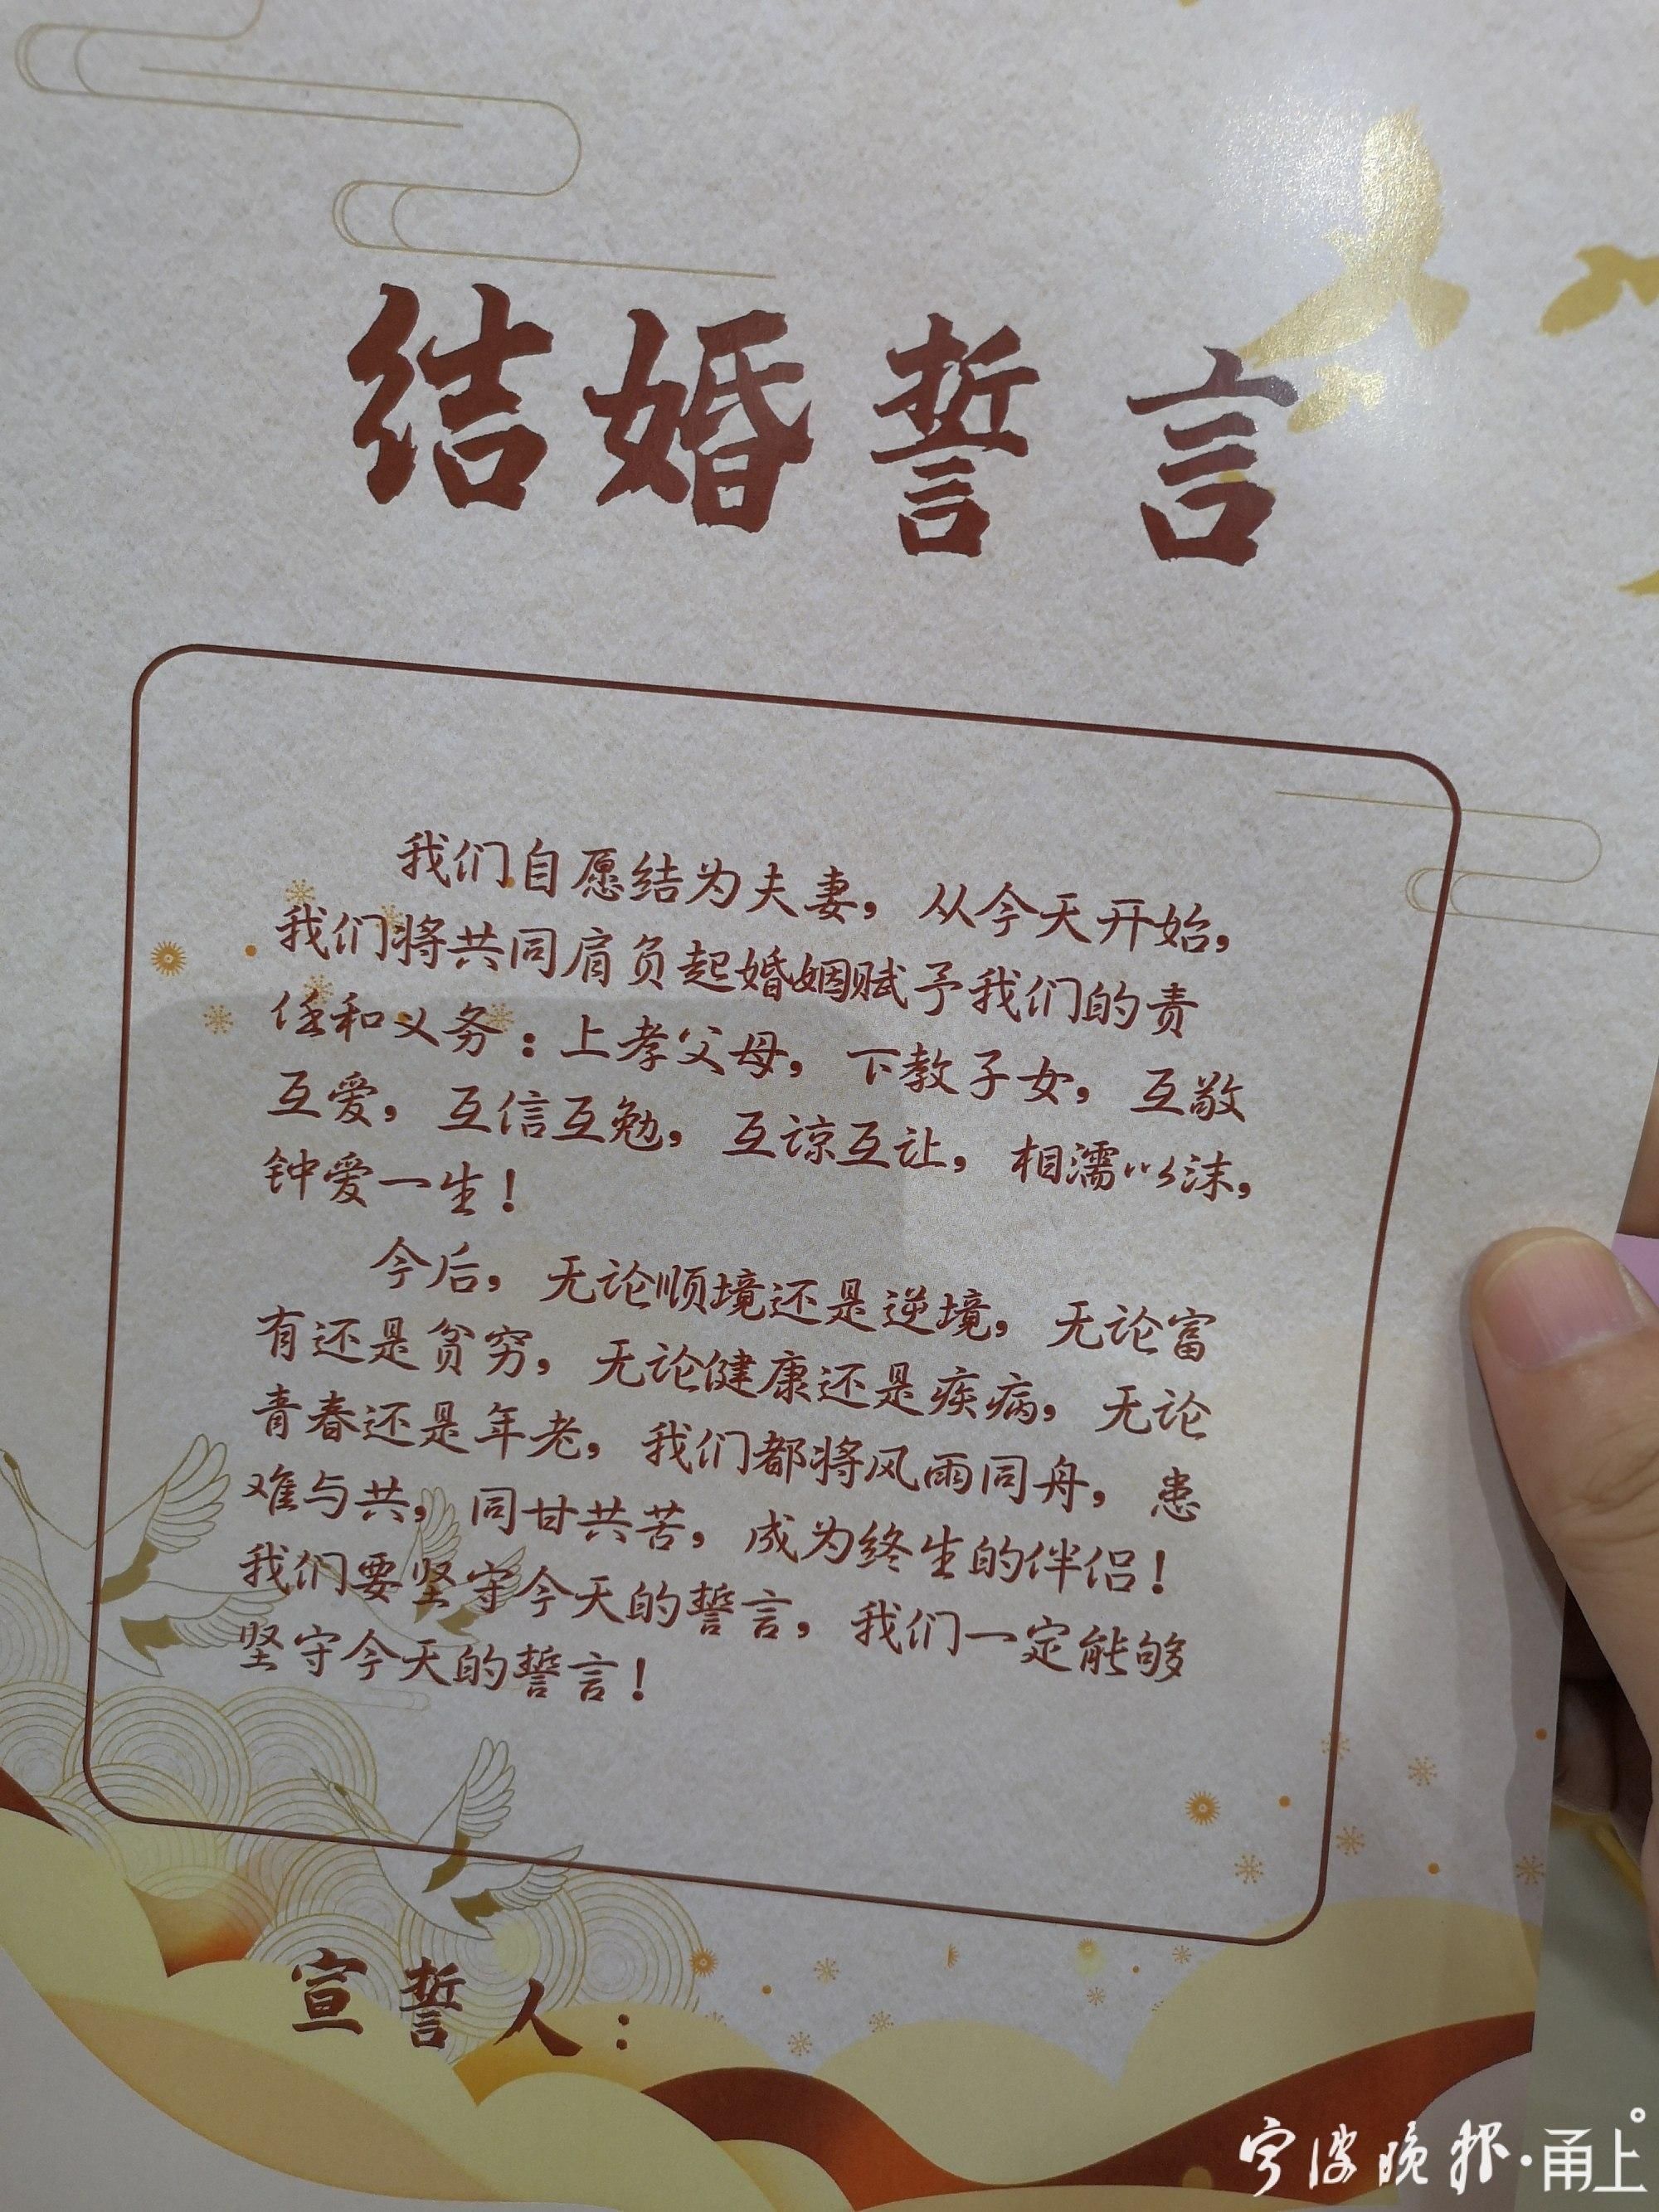 结婚誓言
我们自愿结为夫妻，从今天开始，
我们将共同肩负起婚姻赋予我们的责
任和义务：上孝父母，下教子女，互敬
互爱，互信互勉，互谅互让，相濡以沫，
钟爱一生！
今后，无论顺境还是逆境，无论富
有还是贫穷，无论健康还是疾病，无论
青春还是年老，我们都将风雨同舟，患
难与共，同甘共苦，成为终生的伴侣！
我们要坚守今天的誓言，我们一定能够
坚守今天的誓言！
宣誓人：
宁波晚报·甬上